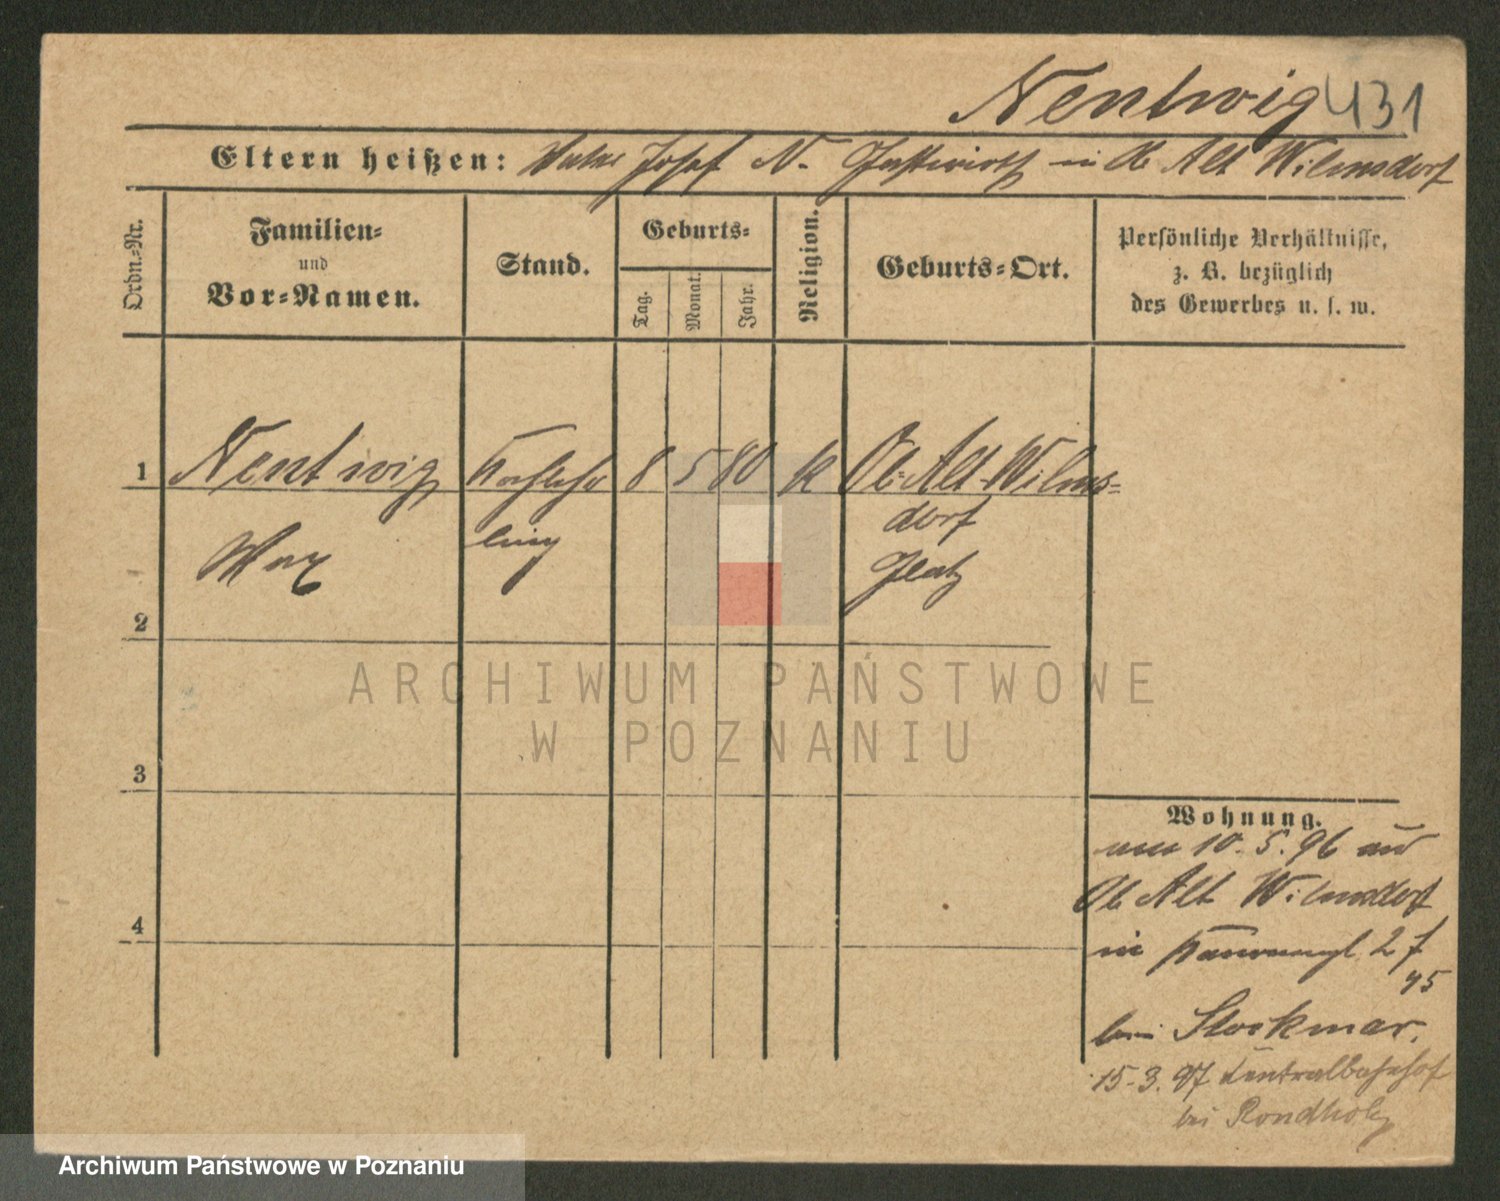 Nentwig 431
Eltern heißen: Vater Josef N. Gastwirth in Ob Alt Wilmsdorf
Ordn.-Nr.
Familien-
und
Vor-Namen.
Stand.
Geburts-
Tag.
Monat.
Jahr.
Religion.
Geburts-Ort.
Persönliche Verhältnisse,
z. B. bezüglich
des Gewerbes u. s. w.
1 Nentwig Kochlehr 8 5 80 k Ob. Alt-Wilms-
ling dorf
Max Glatz
2
3
4
Wohnung.
am 10.5.96 aus
Ob Alt Wilmsdorf
in 2
45
bei Stockmar.
15.3.97 Centralbahnhof
bei Rondholz
ARCHIWUM PAŃSTWOWE
W POZNANIU
Archiwum Państwowe w Poznaniu